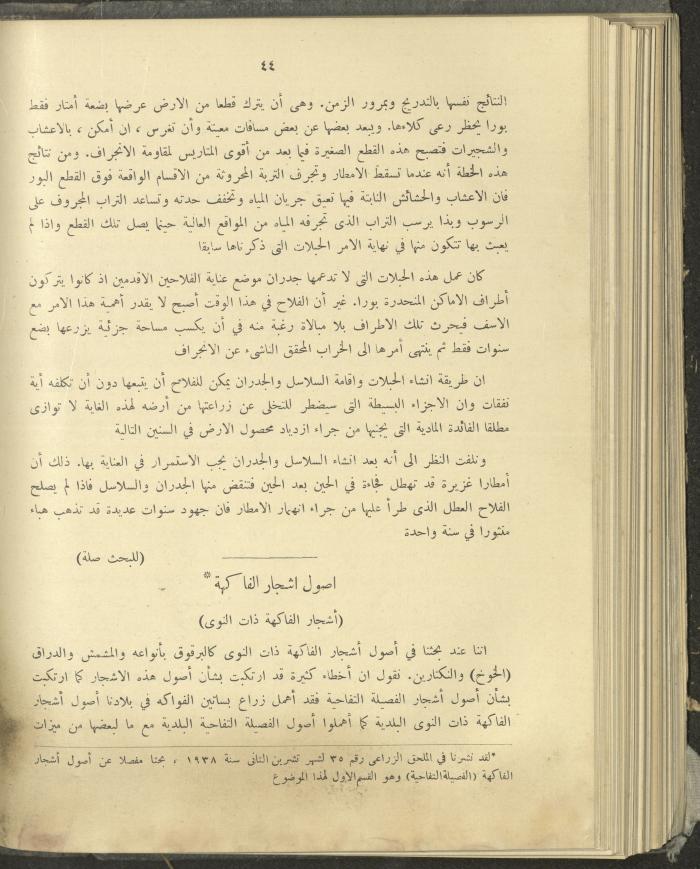 ٤٤
النتائج نفسها بالتدريج وبمرور الزمن. وهى أن يترك قطعا من الارض عرضها بضعة أمتار فقط
بورا يحظر رعى كلاءها. ويبعد بعضها عن بعض مسافات معينة وأن تغرس ، ان أمكن ، بالاعشاب
والشجيرات فتصبح هذه القطع الصغيرة فيما بعد من أقوى المتاريس لمقاومة الانجراف. ومن نتائج
هذه الخطة أنه عندما تسقط الامطار وتجرف التربة المحروثة من الاقسام الواقعة فوق القطع البور
فان الاعشاب والحشائش النابتة فيها تعيق جريان المياه وتخفف حدته وتساعد التراب المجروف على
الرسوب وبذا يرسب التراب الذى تجرفه المياه من المواقع العالية حينما يصل تلك القطع واذا لم
يعبث بها تتكون منها في نهاية الامر الحبلات التى ذكرناها سابقا
كان عمل هذه الحبلات التى لا تدعمها جدران موضع عناية الفلاحين الاقدمين اذ كانوا يتركون
أطراف الاماكن المنحدرة بورا. غير أن الفلاح في هذا الوقت أصبح لا يقدر أهمية هذا الامر مع
الاسف فيحرث تلك الاطراف بلا مبالاة رغبة منه في أن يكسب مساحة جزئية يزرعها بضع
سنوات فقط ثم ينتهى أمرها الى الخراب المحقق الناشىء عن الانجراف
ان طريقة انشاء الحبلات واقامة السلاسل والجدران يمكن للفلاح أن يتبعها دون أن تكلفه أية
نفقات وان الاجزاء البسيطة التى سيضطر للتخلى عن زراعتها من أرضه لهذه الغاية لا توازى
مطلقا الفائدة المادية التى يجنيها من جراء ازدياد محصول الارض في السنين التالية
ونلفت النظر الى أنه بعد انشاء السلاسل والجدران يجب الاستمرار في العناية بها. ذلك أن
أمطارا غزيرة قد تهطل فجاءة في الحين بعد الحين فتنقض منها الجدران والسلاسل فاذا لم يصلح
الفلاح العطل الذى طرأ عليها من جراء انهمار الامطار فان جهود سنوات عديدة قد تذهب هباء
منثورا في سنة واحدة
(للبحث صلة)
اصول اشجار الفاكهة*
(أشجار الفاكهة ذات النوى)
اننا عند بحثنا في أصول أشجار الفاكهة ذات النوى كالبرقوق بأنواعه والمشمش والدراق
(الخوخ) والنكتارين. نقول ان أخطاء كثيرة قد ارتكبت بشأن أصول هذه الاشجار كما ارتكبت
بشأن أصول أشجار الفصيلة التفاحية فقد أهمل زراع بساتين الفواكه في بلادنا أصول أشجار
الفاكهة ذات النوى البلدية كما أهملوا أصول الفصيلة التفاحية البلدية مع ما لبعضها من ميزات
*لقد نشرنا في الملحق الزراعى رقم ٣٥ لشهر تشرين الثانى سنة ١٩٣٨ ، بحثا مفصلا عن أصول أشجار
الفاكهة (الفصيلة التفاحية) وهو القسم الاول لهذا الموضوع